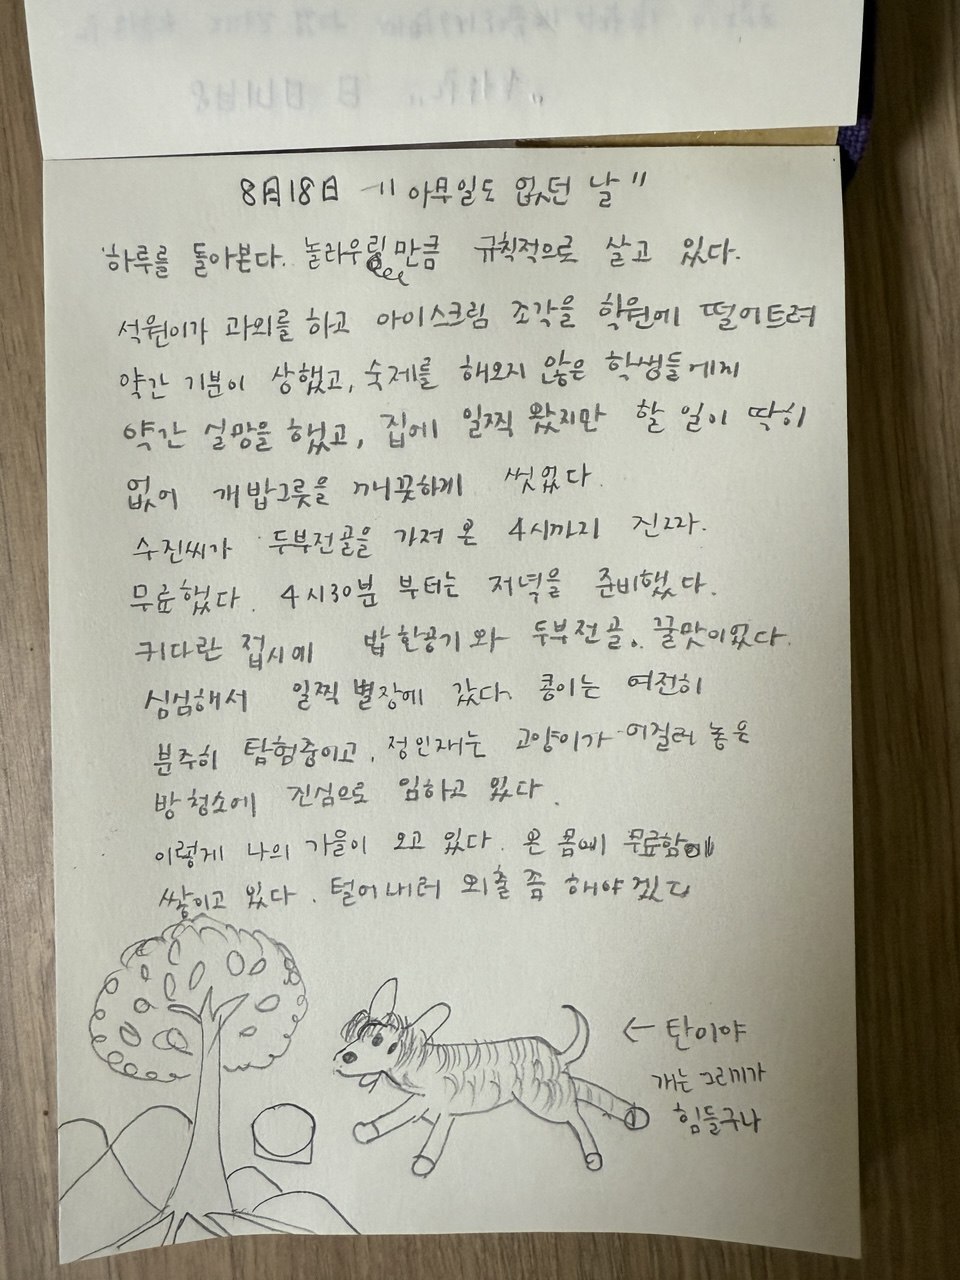 8月18日 "아무일도 없던 날"
하루를 돌아본다. 놀라우릴만큼 규칙적으로 살고 있다.
석원이가 과외를 하고 아이스크림 조각을 학원에 떨어트려
약간 기분이 상했고, 숙제를 해오지 않은 학생들에게
약간 실망을 했고, 집에 일찍 왔지만 할 일이 딱히
없어 개밥그릇을 깨끗하게 씻었다.
수진씨가 두부전골을 가져 온 4시까지
무료했다. 4시30분 부터는 저녁을 준비했다.
커다란 접시에 밥 한공기와 두부전골. 꿀맛이었다.
심심해서 일찍 별장에 갔다. 콩이는 여전히
분주히 탐험중이고, 정인재는 고양이가 어질러 놓은
방청소에 진심으로 임하고 있다.
이렇게 나의 가을이 오고 있다. 온 몸에 무료함이
쌓이고 있다. 털어내러 외출 좀 해야겠다
← 탄이야
개는 그리기가
힘들구나